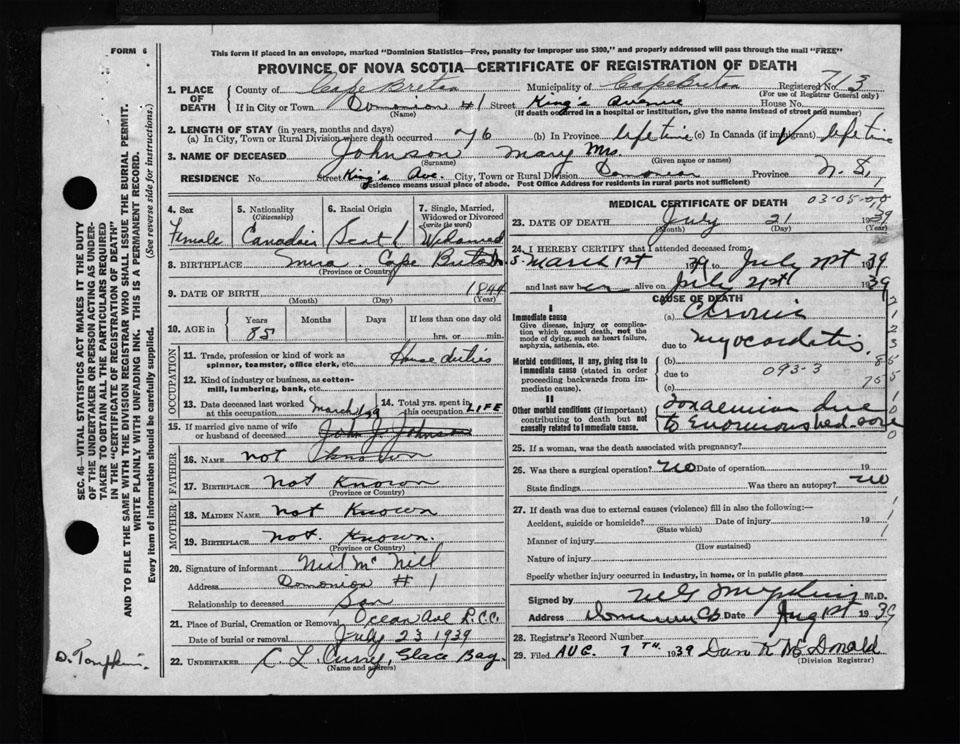 FORM 6
This form if placed in an envelope, marked "Dominion Statistics—Free, penalty for improper use $300," and properly addressed will pass through the mail "FREE"
PROVINCE OF NOVA SCOTIA—CERTIFICATE OF REGISTRATION OF DEATH
1. PLACE OF DEATH County of Cape Breton Municipality of Cape Breton Registered 713
(For use of Registrar General only)
If in City or Town Dominion #1 Street King's Avenue House No.
(Name) (If death occurred in a hospital or institution, give the name instead of street and number)
2. LENGTH OF STAY (in years, months and days)
(a) In City, Town or Rural Division where death occurred 76 (b) In Province lifetime (c) In Canada (if immigrant) lifetime
3. NAME OF DECEASED Johnson Mary Mrs.
(Surname) (Given name or names)
RESIDENCE No. Street King's Ave. City, Town or Rural Division Dominion Province N.S.
(Residence means usual place of abode. Post Office Address for residents in rural parts not sufficient)
4. Sex
Female
5. Nationality (Citizenship)
Canadian
6. Racial Origin
Scotch
7. Single, Married, Widowed or Divorced (write the word)
Widowed
8. BIRTHPLACE Mira Cape Breton N.S.
(Province or Country)
9. DATE OF BIRTH 1844
(Month) (Day) (Year)
10. AGE in Years Months Days If less than one day
85 hrs. or min.
OCCUPATION
11. Trade, profession or kind of work as spinner, teamster, office clerk, etc. House duties
12. Kind of industry or business, as cotton-mill, lumbering, bank, etc.
13. Date deceased last worked at this occupation March 1, 39 14. Total yrs. spent in this occupation LIFE
15. If married give name of wife or husband of deceased John J. Johnson
FATHER
16. NAME not known
17. BIRTHPLACE not known
(Province or Country)
MOTHER
18. MAIDEN NAME not known
19. BIRTHPLACE not known.
(Province or Country)
20. Signature of informant Neil McNeil
Address Domonion #1
Relationship to deceased Son
21. Place of Burial, Cremation or Removal Ocean Ave R.C.C.
Date of burial or removal July 23 1939
22. UNDERTAKER C. L. Curry, Glace Bay
(Name and address)
MEDICAL CERTIFICATE OF DEATH 03-05-
23. DATE OF DEATH July 21 1939
(Month) (Day)
24. I HEREBY CERTIFY that I attended deceased from:
March 1st 39 to July 21st 1939
and last saw her alive on July 21st 1939
CAUSE OF DEATH
I
Immediate cause
Give disease, injury or complication which caused death, not the mode of dying, such as heart failure, asphyxia, asthenia, etc.
(a) Chronic
due to Myocarditis
Morbid conditions, if any, giving rise to immediate cause (stated in order proceeding backwards from immediate cause).
(b)
due to 093-3
(c)
II
Other morbid conditions (if important) contributing to death but not causally related to immediate cause.
Toxaemia due
to Enormous bed-sore
25. If a woman, was the death associated with pregnancy?
26. Was there a surgical operation? no Date of operation 19
State findings Was there an autopsy? no
27. If death was due to external causes (violence) fill in also the following:—
Accident, suicide or homicide? Date of injury 19
(State which)
Manner of injury
(How sustained)
Nature of injury
Specify whether injury occurred in industry, in home, or in public place
Signed by M.D.
Address Dominion CB Date Aug 1st 1939
28. Registrar's Record Number
29. Filed AUG. 7TH. 1939 Dan K McDonald
(Division Registrar)
SEC. 46—VITAL STATISTICS ACT MAKES IT THE DUTY
OF THE UNDERTAKER OR PERSON ACTING AS UNDERTAKER TO OBTAIN ALL THE PARTICULARS REQUIRED
IN THE "CERTIFICATE OF REGISTRATION OF DEATH"
AND TO FILE THE SAME WITH THE DIVISION REGISTRAR WHO SHALL ISSUE THE BURIAL PERMIT.
WRITE PLAINLY WITH UNFADING INK. THIS IS A PERMANENT RECORD.
Every item of information should be carefully supplied. (See reverse side for instructions.)
D. Tompkins